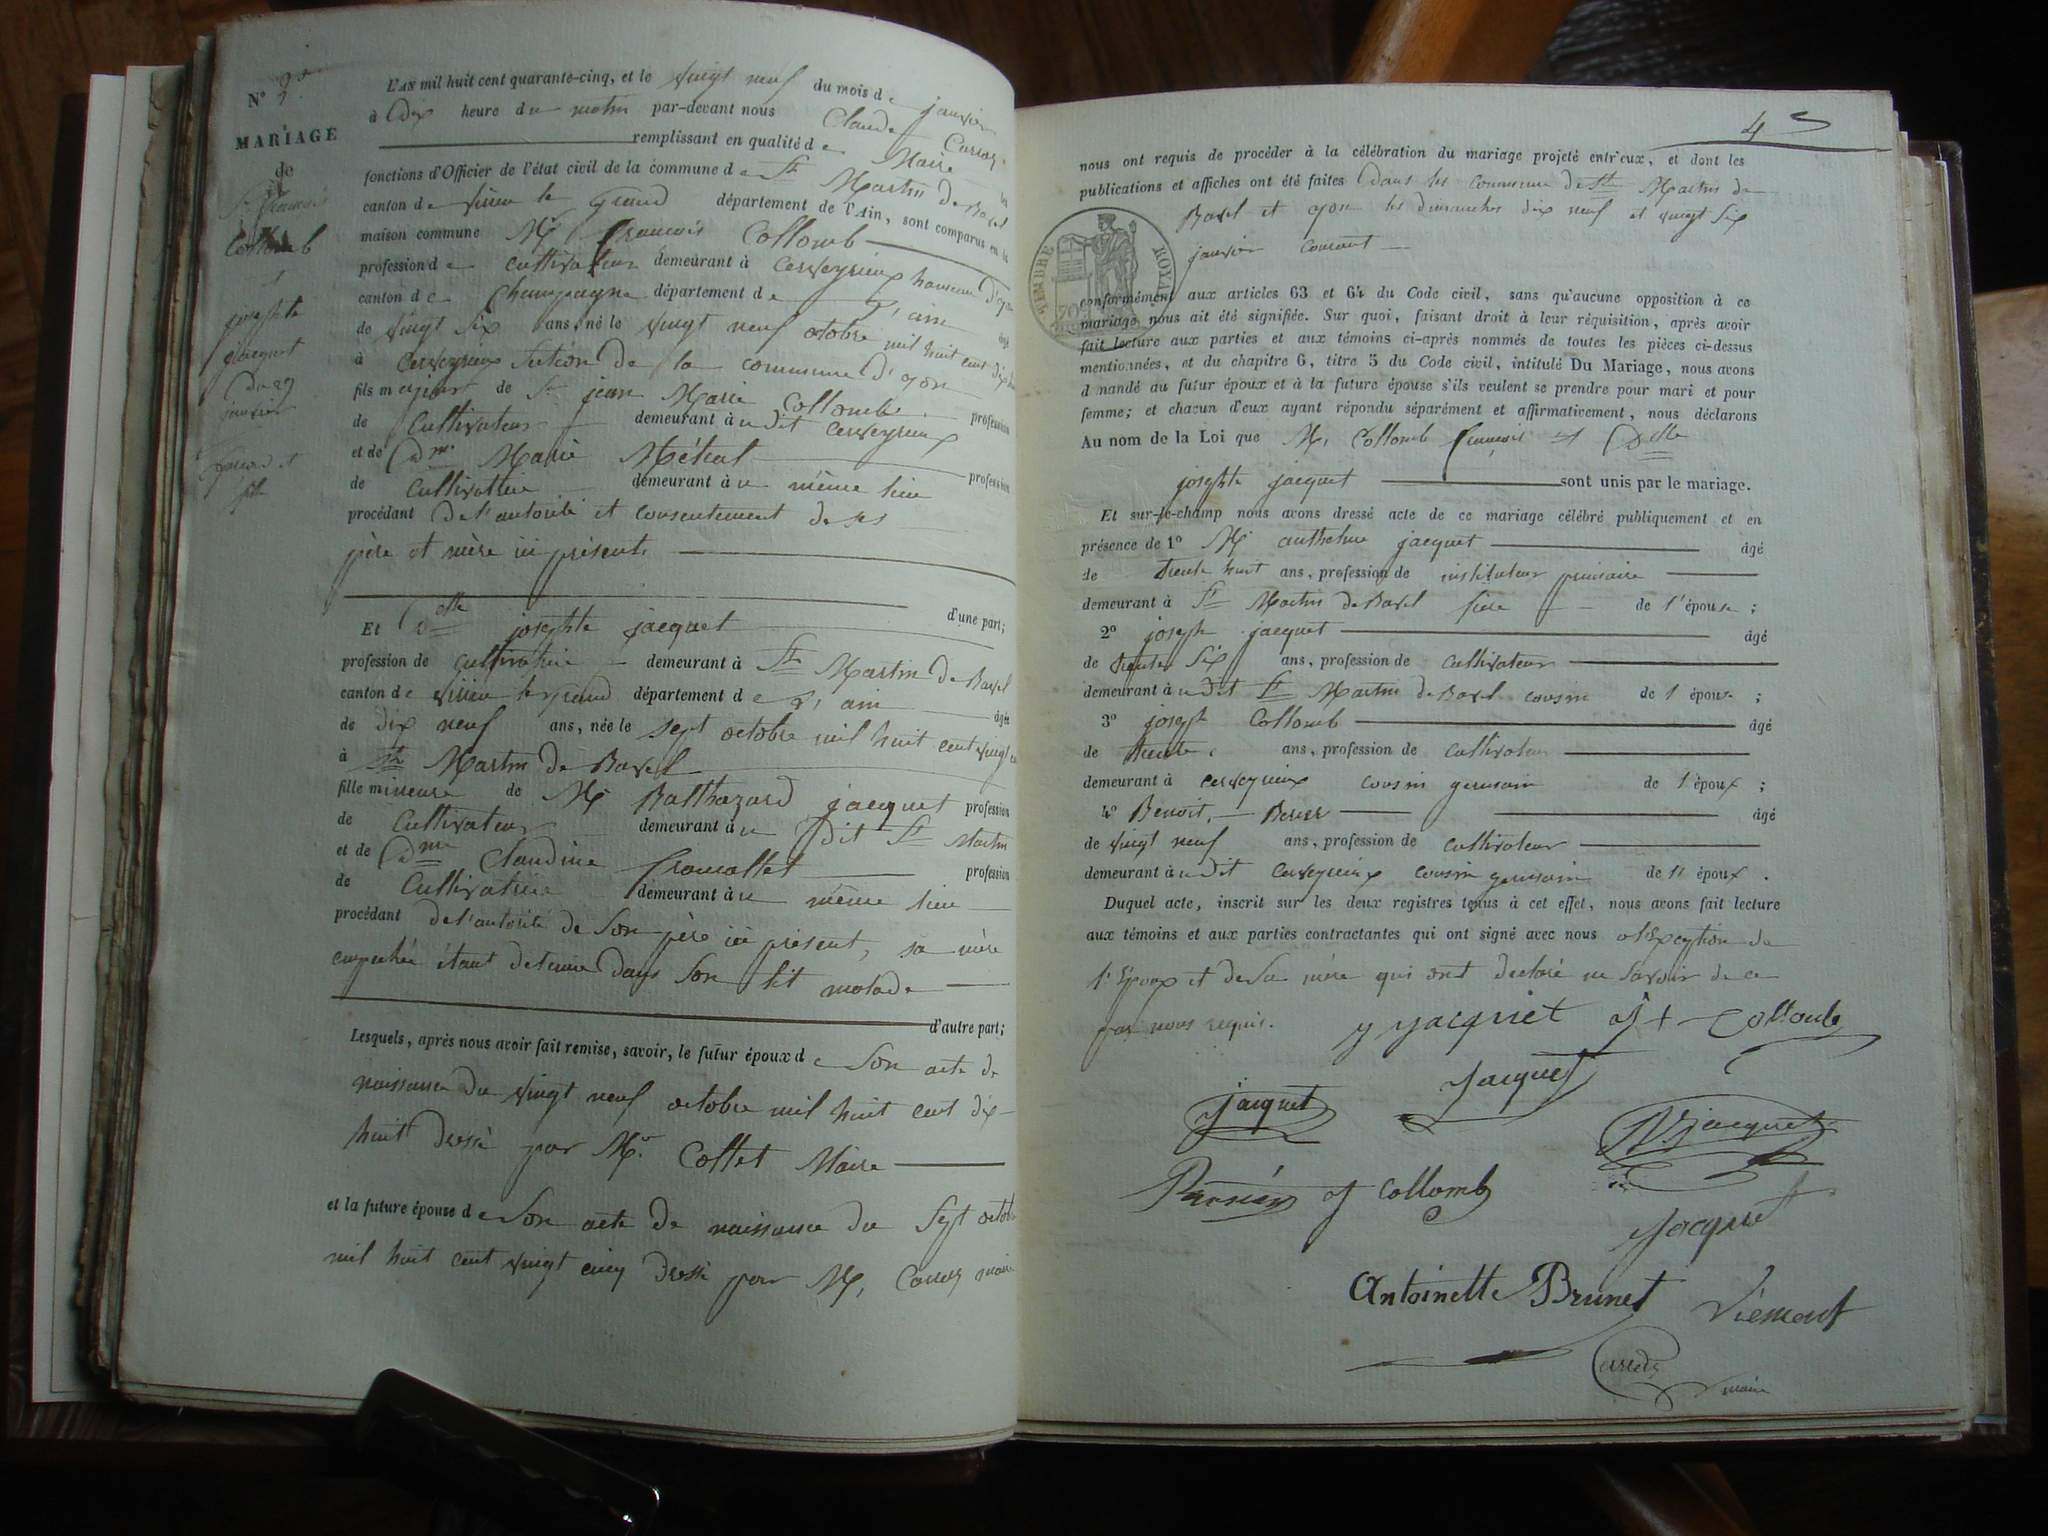 N° 3
MARIAGE
de
Sr françois
Collomb
&
josephte
jacquet
Du 29
janvier
garçon et
fille
L'AN mil huit cent quarante-cinq, et le vingt neuf du mois de janvier
à dix heure du matin par-devant nous Claude Carrez
remplissant en qualité de Maire les
fonctions d'Officier de l'état civil de la commune de St Martin de Bavel
canton de virieu le grand département de l'Ain, sont comparus en la
maison commune Mr françois Collomb
profession de cultivateur demeurant à cerveyrieux hameau d'yon
canton de Champagne département de l'ain âgé
de vingt six ans, né le vingt neuf octobre mil huit cent dix huit
à cerveyrieux section de la commune d'yon
fils majeur de Sr jean Marie Collomb profession
de Cultivateur demeurant à u dit cerveyrieux
et de Dme Marie Métral profession
de cultivatrice demeurant à u même lieu
procédant de l'autorité et consentement de ses
père et mère ici présents
d'une part;
Et Delle josephte jacquet
profession de cultivatrice demeurant à St Martin de Bavel
canton de virieu le grand département de l'ain âgée
de dix neuf ans, née le sept octobre mil huit cent vingt
à St Martin de Bavel
fille mineure de Mr Balthazard jacquet profession
de Cultivateur demeurant à u dit St Martin
et de Dme Claudine profession
de Cultivatrice demeurant à u même lieu
procédant de l'autorité de son père ici présent, sa mère
empechée étant detenue dans son lit malade
d'autre part;
Lesquels, après nous avoir fait remise, savoir, le futur époux de son acte de
naissance du vingt neuf octobre mil huit cent dix-
huit dressé par Mr Collet Maire
et la future épouse de son acte de naissance du sept octobre
mil huit cent vingt cinq dressé par M, Carrez maire
4
nous ont requis de procéder à la célébration du mariage projeté entr'eux, et dont les
publications et affiches ont été faites dans les commune de St Martin de
Bavel et yon les dimanches dix neuf et vingt six
janvier courant
TIMBRE ROYAL
70
conformément aux articles 63 et 64 du Code civil, sans qu'aucune opposition à ce
mariage nous ait été signifiée. Sur quoi, faisant droit à leur réquisition, après avoir
fait lecture aux parties et aux témoins ci-après nommés de toutes les pièces ci-dessus
mentionnées, et du chapitre 6, titre 5 du Code civil, intitulé Du Mariage, nous avons
d mandé au futur époux et à la future épouse s'ils veulent se prendre pour mari et pour
femme; et chacun d'eux ayant répondu séparément et affirmativement, nous déclarons
Au nom de la Loi que M, Collomb françois et Delle
josephte jacquet sont unis par le mariage.
Et sur-le-champ nous avons dressé acte de ce mariage célébré publiquement et en
présence de 1° Mr anthelme jacquet âgé
de trente huit ans, profession de instituteur primaire
demeurant à St Martin de Bavel frère de l'épouse;
2° joseph jacquet âgé
de trente six ans, profession de cultivateur
demeurant à u dit St Martin de Bavel cousin de l'épouse;
3° joseph Collomb âgé
de trente ans, profession de cultivateur
demeurant à cerveyrieux cousin germain de l'époux;
4° Benoit Berger âgé
de vingt neuf ans, profession de cultivateur
demeurant à u dit cerveyrieux cousin germain de l'époux.
Duquel acte, inscrit sur les deux registres tenus à cet effet, nous avons fait lecture
aux témoins et aux parties contractantes qui ont signé avec nous a l'Exception de
l'époux et de sa mère qui ont declaré ne savoir de ce
par nous requis. y yacquet Collomb
jacquet Jacquet
jacquet
Collomb
Jacquet
Antoinette Brunet Viemont
Carrez
maire